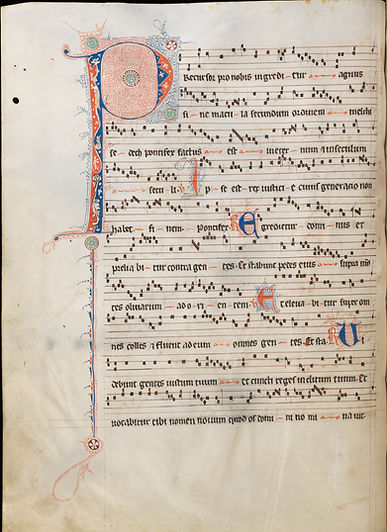 Precursor pro nobis ingredi - tur agnus
si - ne macu - la secundum ordinem melchi
se - dech pontifex factus est in eter - num ⁊ in seculum
secu - li. I p - se est rex iusticie cuius generatio non
habet fi - nem pontifex R E gredietur domi - nus et
prelia bi - tur contra gen - tes. Et stabunt pedes eius supra mō
tes olivarum - ad o - ri - en - tem. E t eleva - bi - tur super om
nes colles ⁊ fluent ad eum omnes gen - tes. Et sta. R U i
debunt gentes iustum tuum et cuncti reges inclitum tuum. Et
vocabitur tibi nomen novum quod os domi - ni no mi - na vit.